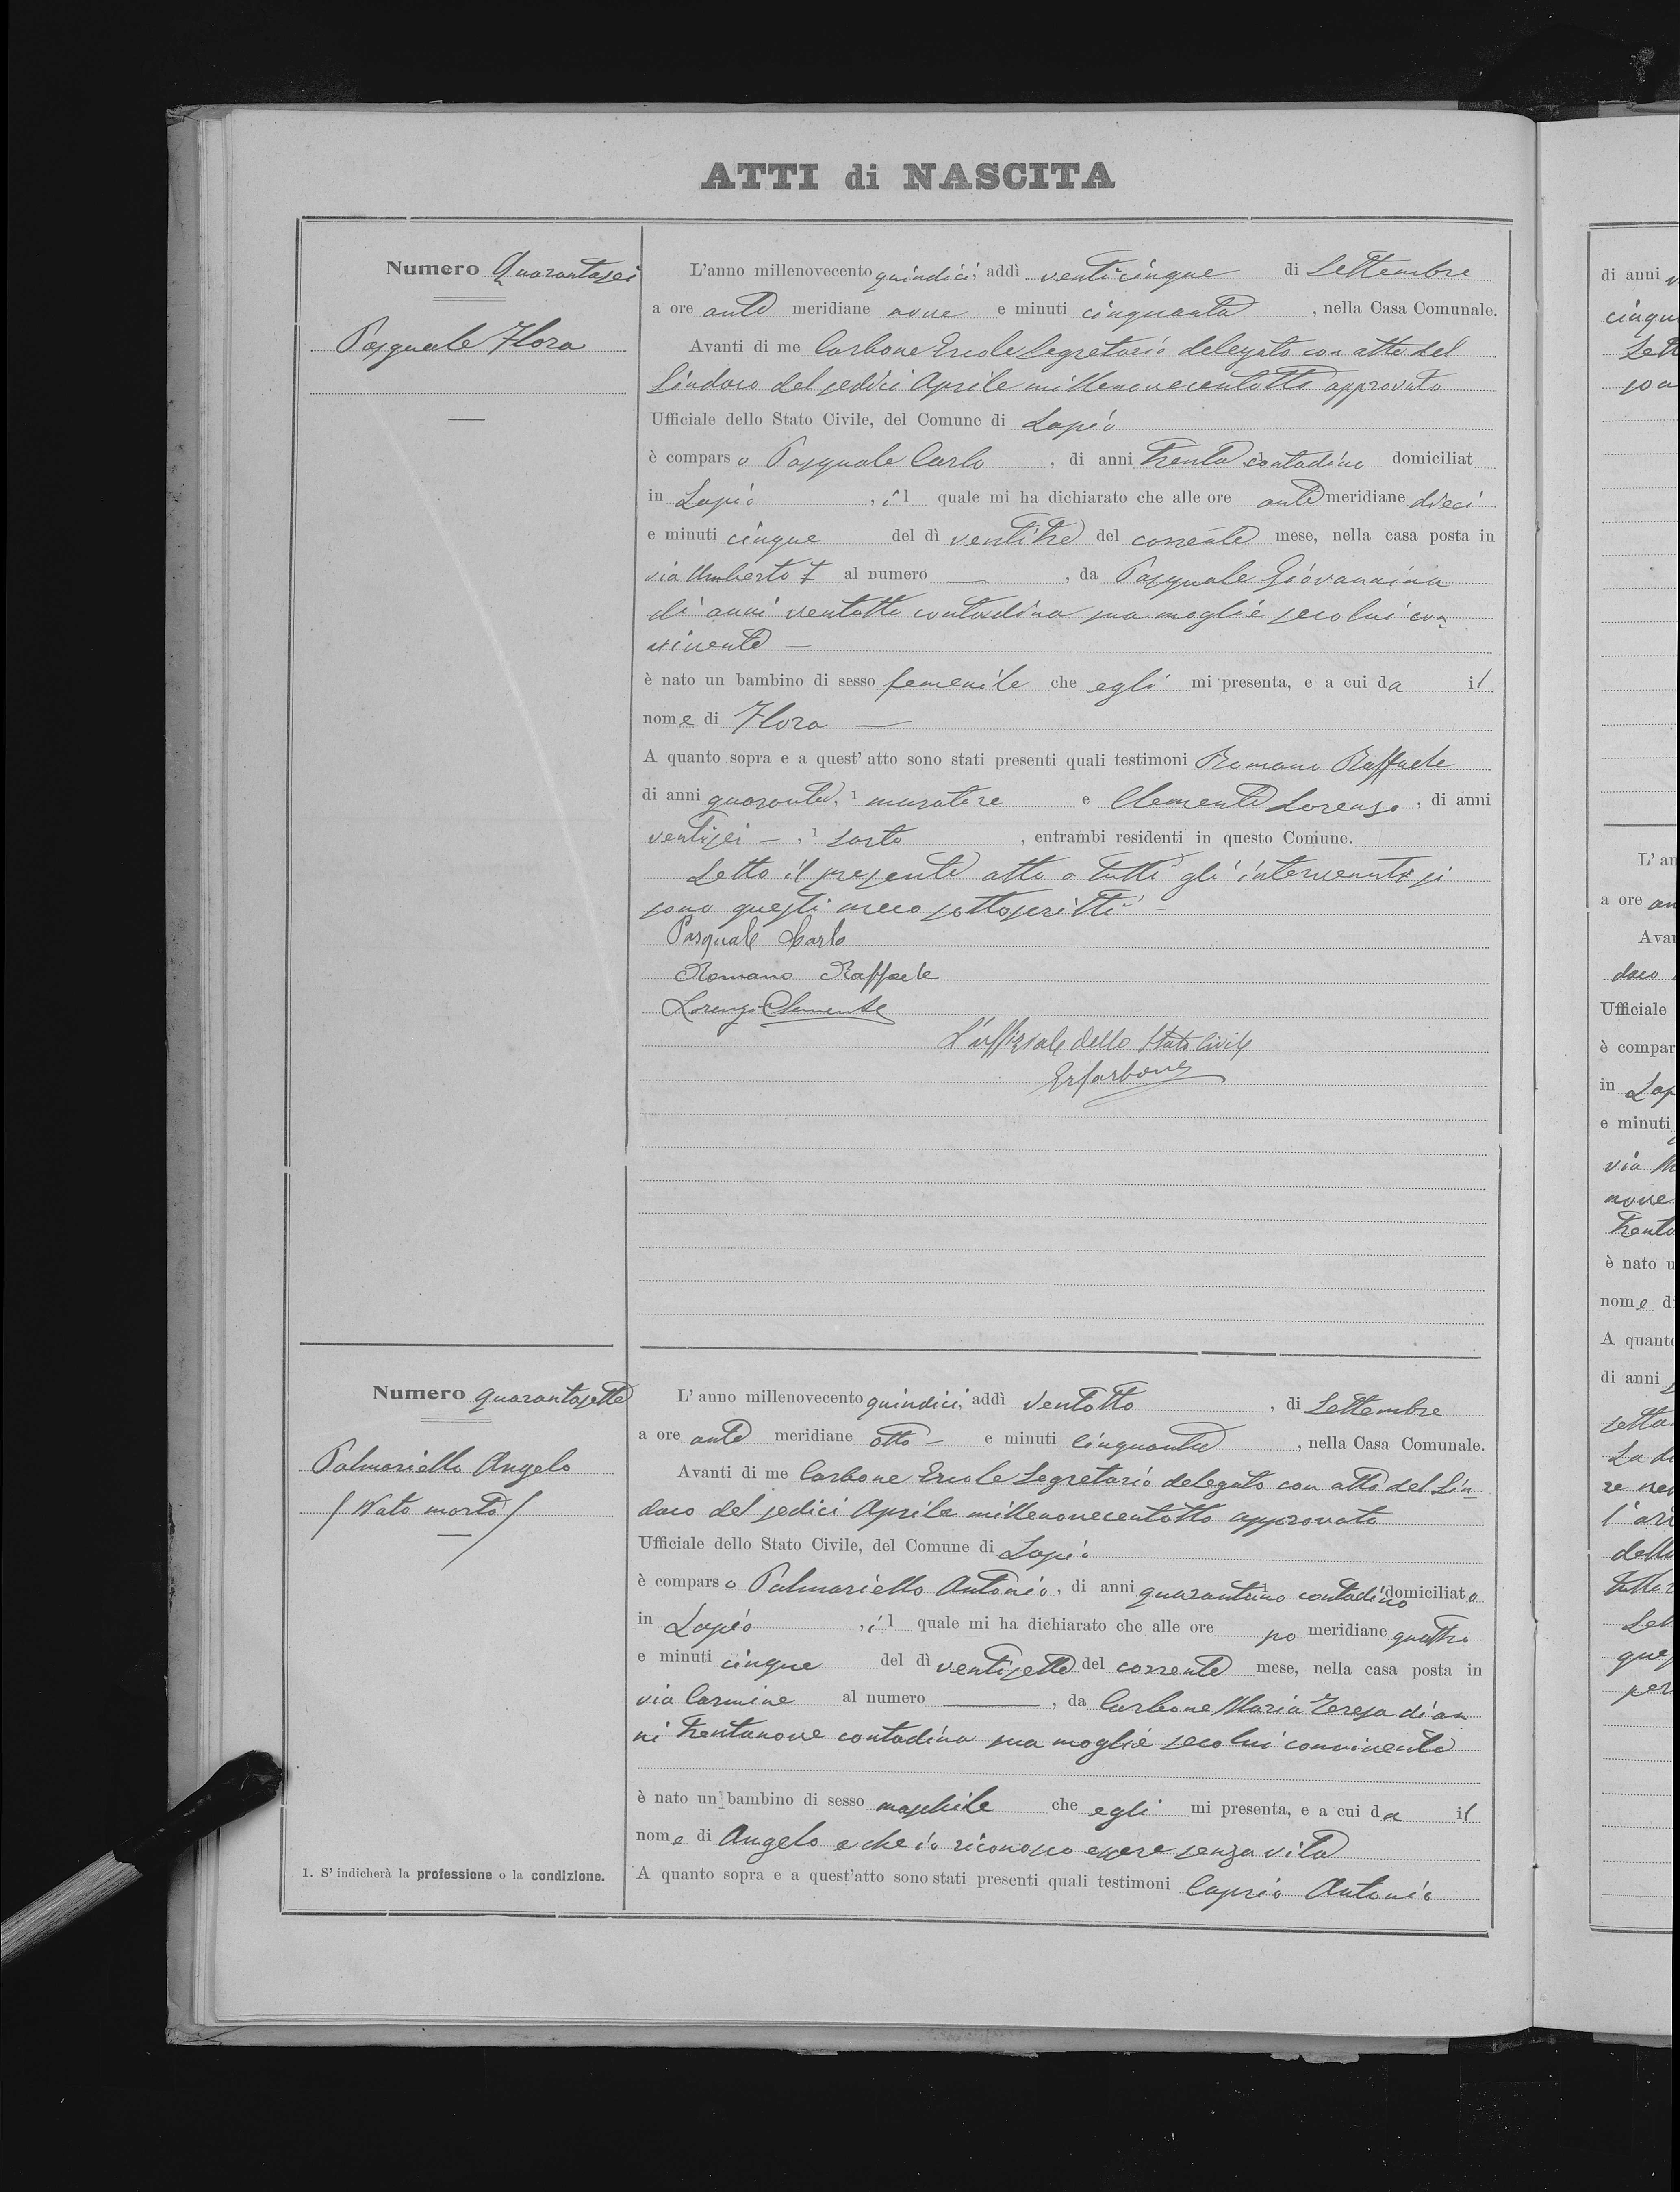 ATTI di NASCITA
Numero Quarantasei
Pasquale Flora
L'anno millenovecento quindici, addì venticinque di Settembre
a ore ante meridiane nove e minuti cinquanta, nella Casa Comunale.
Avanti di me Carbone Ercole Segretario delegato con atto del
Sindaco del sedici Aprile millenovecentotto approvato
Ufficiale dello Stato Civile, del Comune di Lapio
è comparso Pasquale Carlo, di anni trenta contadino domiciliat
in Lapio, il quale mi ha dichiarato che alle ore ante meridiane dieci
e minuti cinque del dì ventitre del corrente mese, nella casa posta in
via Umberto I al numero —, da Pasquale Giovannina
di anni ventotto contadina sua moglie seco lui con
vivente —
è nato un bambino di sesso femenile che egli mi presenta, e a cui da il
nome di Flora —
A quanto sopra e a quest'atto sono stati presenti quali testimoni Romano Raffaele
di anni quaranta, 1 muratore e Clemente Lorenzo, di anni
ventisei —, 1 sarto, entrambi residenti in questo Comune.
Letto il presente atto a tutti gli intervenuti si
sono questi meco sottoscritti —
Pasquale Carlo
Romano Raffaele
Lorenzo Clemente
L'uffiziale dello Stato Civile
ErCarbone
Numero quarantasette
Palmariello Angelo
(Nato morto)
—
L'anno millenovecento quindici, addì ventotto, di Settembre
a ore ante meridiane otto — e minuti cinquantre, nella Casa Comunale.
Avanti di me Carbone Ercole Segretario delegato con atto del Sin
daco del sedici Aprile millenovecentotto approvato
Ufficiale dello Stato Civile, del Comune di Lapio
è comparso Palmariello Antonio, di anni quarantuno contadino domiciliato
in Lapio, il quale mi ha dichiarato che alle ore po meridiane quattro
e minuti cinque del dì ventisette del corrente mese, nella casa posta in
via Carmine al numero —, da Carbone Maria Teresa di an
ni trentanove contadina sua moglie seco lui convivente
è nato un bambino di sesso maschile che egli mi presenta, e a cui da il
nome di Angelo e che io riconosco essere senza vita
A quanto sopra e a quest'atto sono stati presenti quali testimoni Caprio Antonio
1. S'indicherà la professione o la condizione.
di anni
cinqu
Sett
L'an
a ore an
Avan
daco
Ufficiale
è compar
in Lap
e minuti
via
nove
trenta
è nato u
nome d
A quanto
di anni